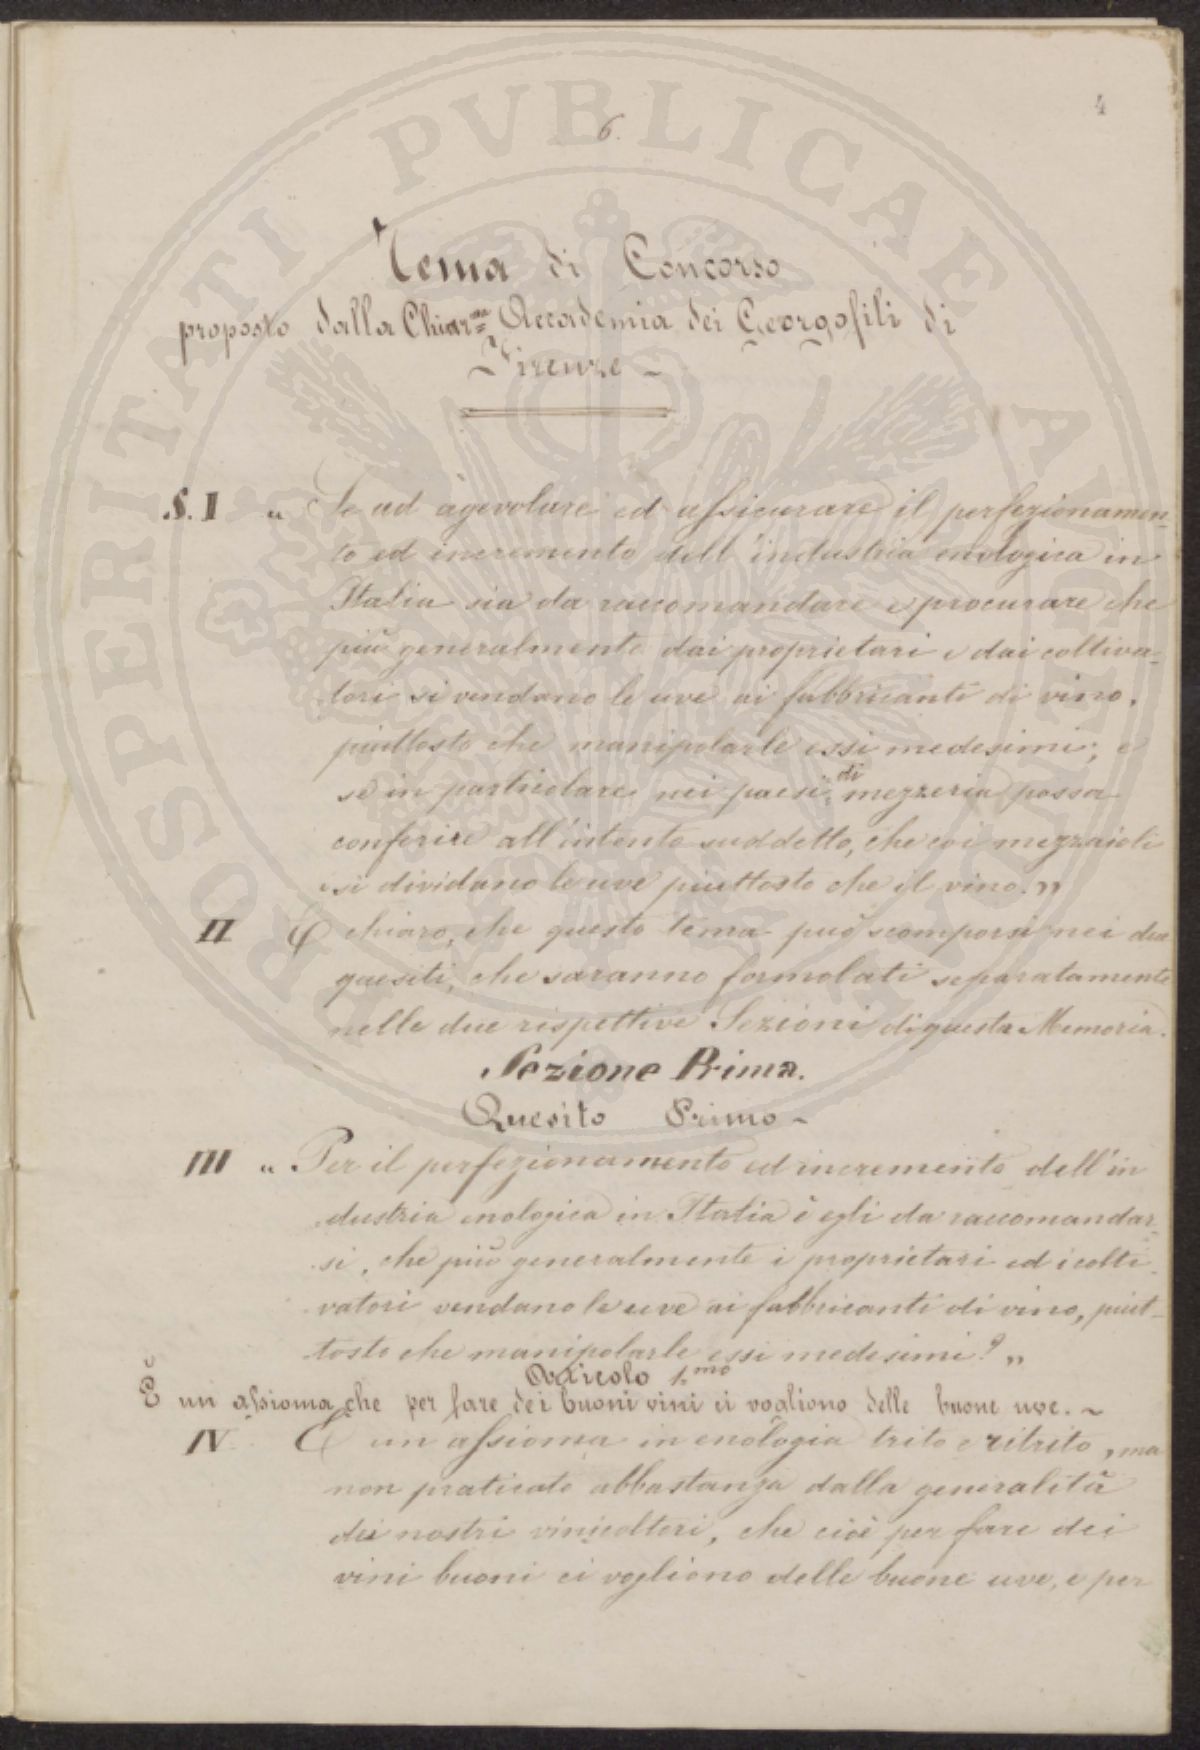 4
6.
Tema di Concorso
proposto dalla Chiar.ma Accademia dei Georgofili di
Firenze -
§. I " Se ad agevolare ed assicurare il perfezionamen-
to ed incremento dell'industria enologica in
Italia sia da raccomandare e procurare che
più generalmente dai proprietari e dai coltiva-
tori si vendano le uve ai fabbricanti di vino,
piuttosto che manipolarle essi medesimi; e
se in particolare nei paesi di mezzeria possa
conferire all'intento suddetto, che coi mezzaioli
si dividano le uve piuttosto che il vino. "
II È chiaro, che questo tema può scomporsi nei due
quesiti, che saranno formolati separatamente
nelle due rispettive Sezioni di questa Memoria.
Sezione Prima.
Quesito Primo -
III " Per il perfezionamento ed incremento dell'in
dustria enologica in Italia è egli da raccomandar-
si, che più generalmente i proprietari ed i colti-
vatori vendano le uve ai fabbricanti di vino, piut-
tosto che manipolarle essi medesimi? "
Articolo 1.mo
È un assioma che per fare dei buoni vini ci vogliono delle buone uve. ~
IV È un assioma in enologia trito e ritrito, ma
non praticato abbastanza dalla generalità
dei nostri vinicoltori, che cioè per fare dei
vini buoni ci vogliono delle buone uve, e per
PROSPERITATI PVBLICAE AVGENDAE